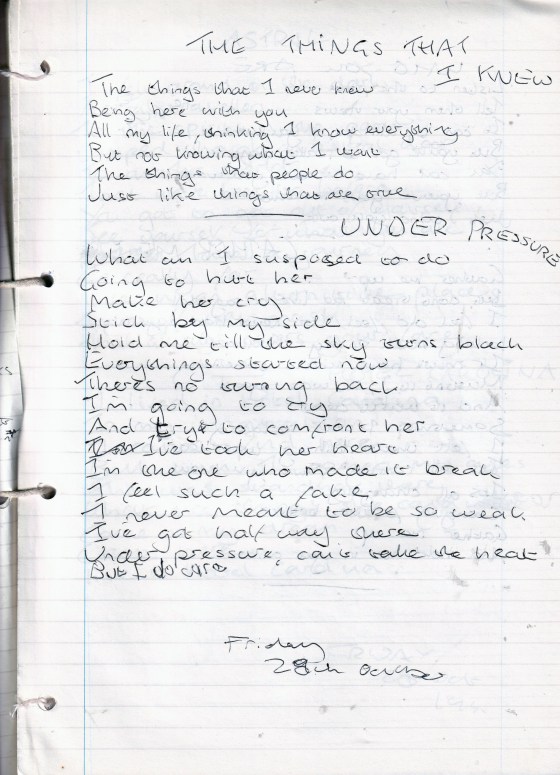 THE THINGS THAT
I KNEW
The things that I never knew
Being here with you
All my life, thinking I know everything
But not knowing what I want
The things that people do
Just like things that are true
UNDER PRESSURE
What am I supposed to do
Going to hurt her
Make her cry
Stick by my side
Hold me till the sky turns black
Everythings started now
Theres no turning back
I'm going to try
And try to comfront her
I've took her heart
I'm the one who made it break
I feel such a fake
I never meant to be so weak
I've got half way there
Under pressure, can't take the heat
But I do care
Friday
28th October